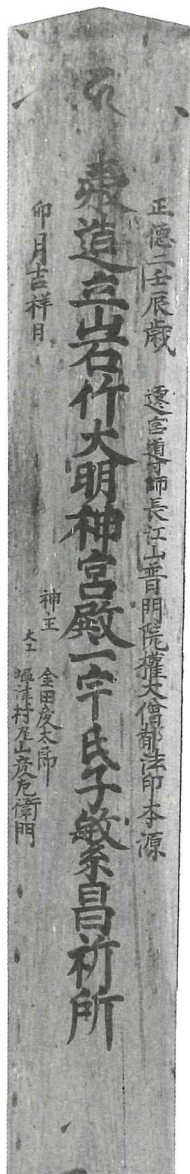 正徳二壬辰歳 遷宮導師長江山普明院権大僧都法印本源
奉造立山石竹大明神宮殿一宇氏子敏系昌祈所
卯月吉祥日
神主 金田慶太郎
大工 塩津村尾山彦左衛門